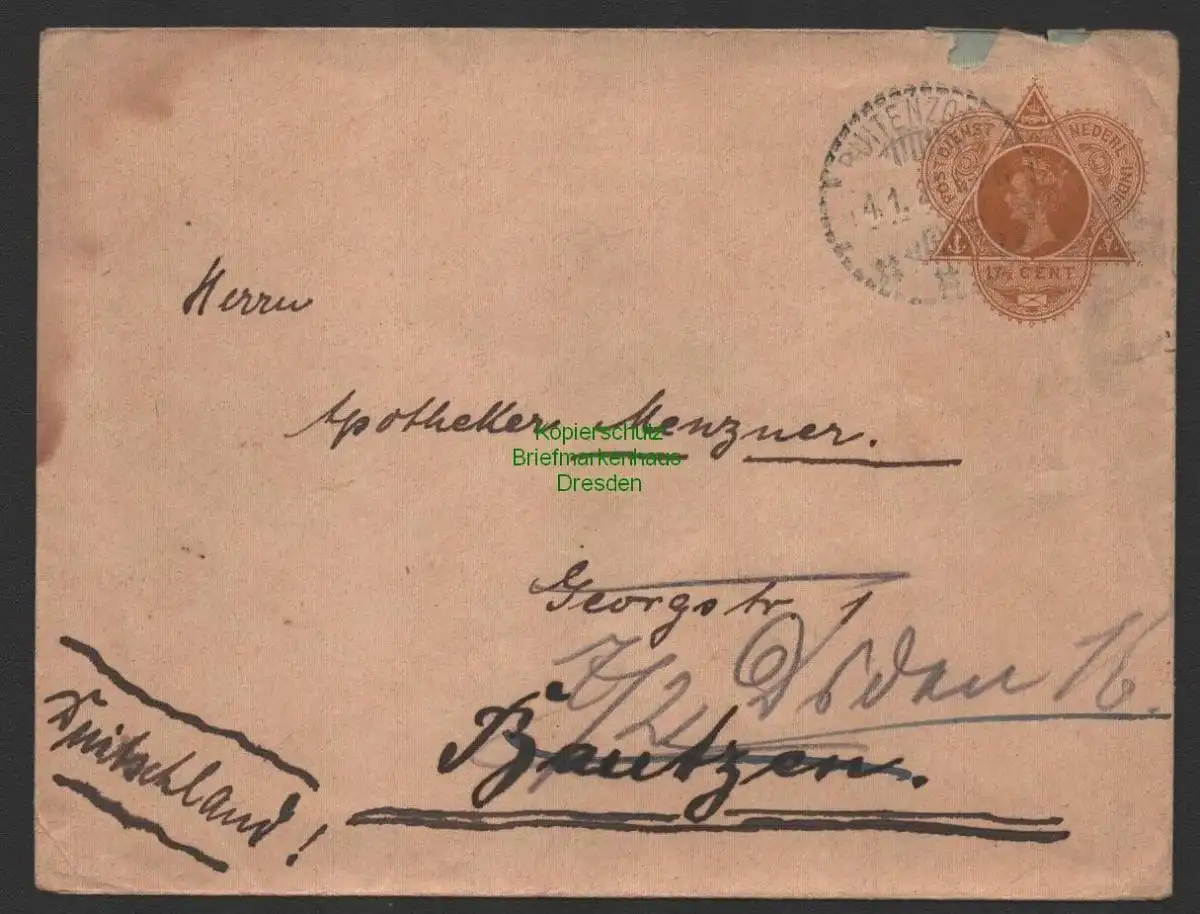 BUITENZO
4.1.2
POSTDIENST NEDERL-INDIE
17½ CENT
Herrn
Apotheker Menzner.
Kopierschutz
Briefmarkenhaus
Dresden
Georgstr 1
Bautzen.
Duitschland!